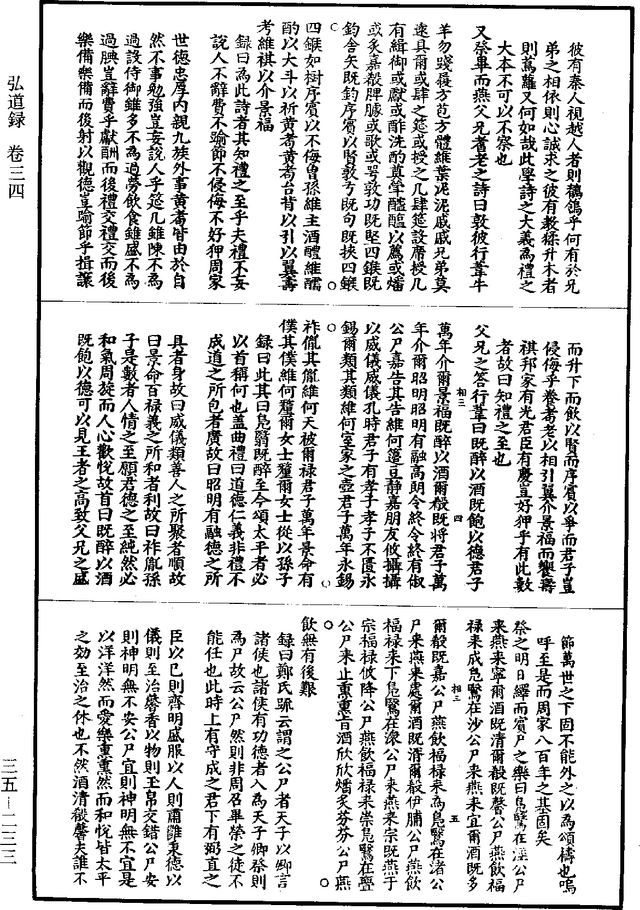 弘道録 卷三四
三五—二三三
彼有秦人視越人者則鶺鴒乎何有於兄
弟之相依則心誠求之彼有教猱升木者
則蔦蘿又何如哉此學詩之大義為禮之
大本不可以不察也
又祭畢而燕父兄耆老之詩曰敦彼行葦牛
羊勿踐履方苞方體維葉泥泥戚戚兄弟莫
遠具爾或肆之筵或授之几肆筵設席授几
有緝御或獻或酢洗酌奠斝醓醢以薦或燔
或炙嘉殽脾臄或歌或咢敦弓既堅四鍭既
鈞舍矢既鈞序賓以賢敦弓既句既挾四鍭
四鍭如樹序賓以不侮曾孫維主酒醴維醹
酌以大斗以祈黃耇黃耇台背以引以翼壽
考維祺以介景福
録曰為此詩者其知禮之至乎夫禮不妄
說人不辭費不踰節不侵侮不好狎周家
世德忠厚内親九族外事黃耇皆由於自
然不事勉強豈妄說人乎筵几雖陳不為
過設侍御雖多不為過勞飲食雖盛不為
過腆豈辭費乎獻酬而後禮交禮交而後
樂備樂備而後射以觀德豈踰節乎揖讓
而升下而飲以賢而序賓以爭而君子豈
侵侮乎養耇老以相引翼介景福而饗壽
祺邦家有光君臣有慶豈好狎乎有此數
者故曰知禮之至也
父兄之答行葦曰既醉以酒既飽以德君子
萬年介爾景福既醉以酒爾殽既將君子萬
年介爾昭明昭明有融高朗令終令終有俶
公尸嘉告其告維何籩豆靜嘉朋友攸攝攝
以威儀威儀孔時君子有孝子孝子不匱永
錫爾類其類維何室家之壼君子萬年永錫
祚胤其胤維何天被爾祿君子萬年景命有
僕其僕維何釐爾女士釐爾女士從以孫子
録曰此其曰鳧鷖既醉至今頌太平者必
以首稱何也蓋曲禮曰道德仁義非禮不
成道之所包者廣故曰昭明有融德之所
具者身故曰威儀類善人之所聚者順故
曰景命百祿義之所和者利故曰祚胤孫
子是數者人情之至願君德之至純然必
和氣周旋而人心歡悅故首曰既醉以酒
既飽以德可以見王者之高致父兄之盛
節萬世之下固不能外之以為頌禱也嗚
呼至是而周家八百年之基固矣
祭之明日繹而賓尸之樂曰鳧鷖在涇公尸
來燕來寧爾酒既清爾殽既馨公尸燕飲福
祿來成鳧鷖在沙公尸來燕來宜爾酒既多
爾殽既嘉公尸燕飲福祿來為鳧鷖在渚公
尸來燕來處爾酒既湑爾殽伊脯公尸燕飲
福祿來下鳧鷖在潀公尸來燕來宗既燕于
宗福祿攸降公尸燕飲福祿來崇鳧鷖在亹
公尸來止熏熏旨酒欣欣燔炙芬芬公尸燕
飲無有後艱
録曰鄭氏䟽云謂之公尸者天子以卿言
諸侯也諸侯有功德者入為天子卿祭則
為尸故云公尸然則非周召畢榮之徒不
能任也此時上有守成之君下有弼直之
臣以已則齊明盛服以人則肅雝秉德以
儀則至治馨香以物則玉帛交錯公尸安
則神明無不安公尸宜則神明無不宜是
以洋洋然而愛樂熏熏然而和悅皆太平
之効至治之休也不然酒清殽馨夫誰不